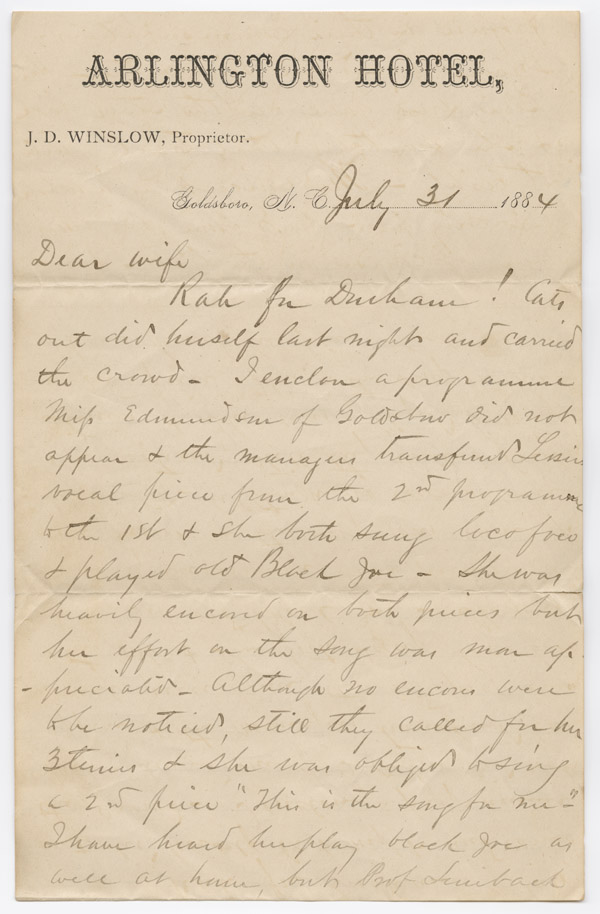 ARLINGTON HOTEL,
J. D. WINSLOW, Proprietor.
Goldsboro, N. C. July 31 1884
Dear wife
Rah for Durham! Cats
out did herself last night and carried
the crowd - I enclose a programme
Miss Edmundson of Goldsboro did not
appear & the managers transferred
vocal piece from the 2nd programme
to the 1st & she both sung locofoco
& played old Black Joe - She was
heavily encored on both pieces but
her effort on the song was more ap-
-preciated - Although no encores were
to be noticed, still they called for her
3 times & she was obliged to sing
a 2nd piece "This is the song for me" -
I have heard her play black Joe as
well at home, but Prof